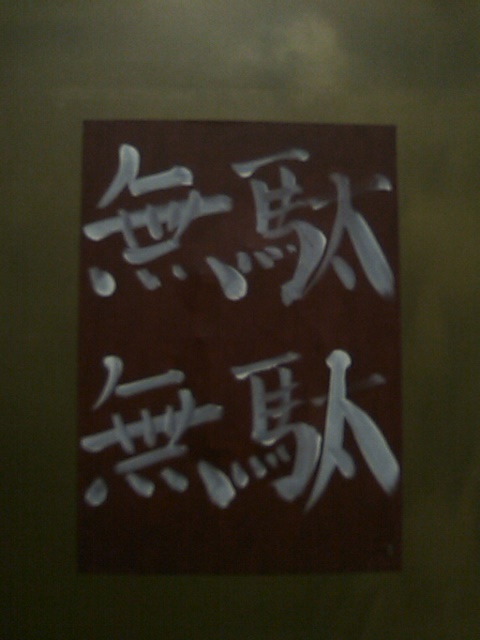 無駄
無駄